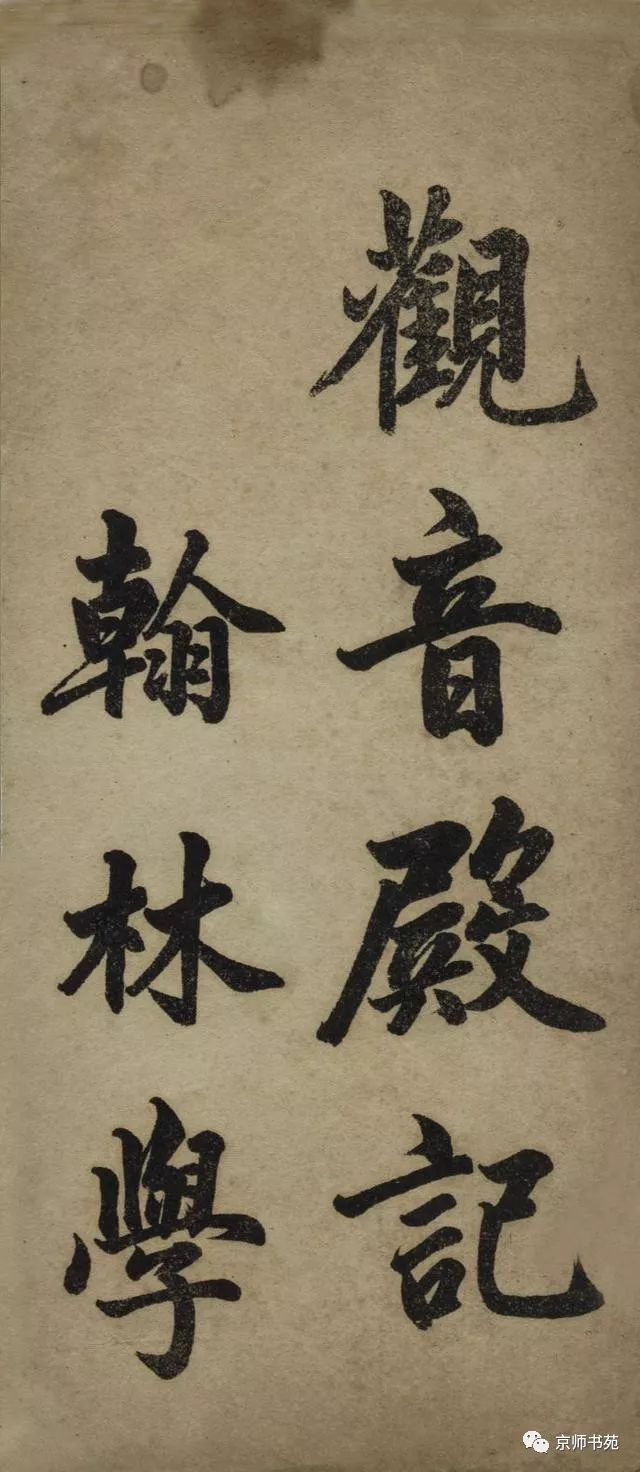 觀音殿記
翰林學
京师书苑